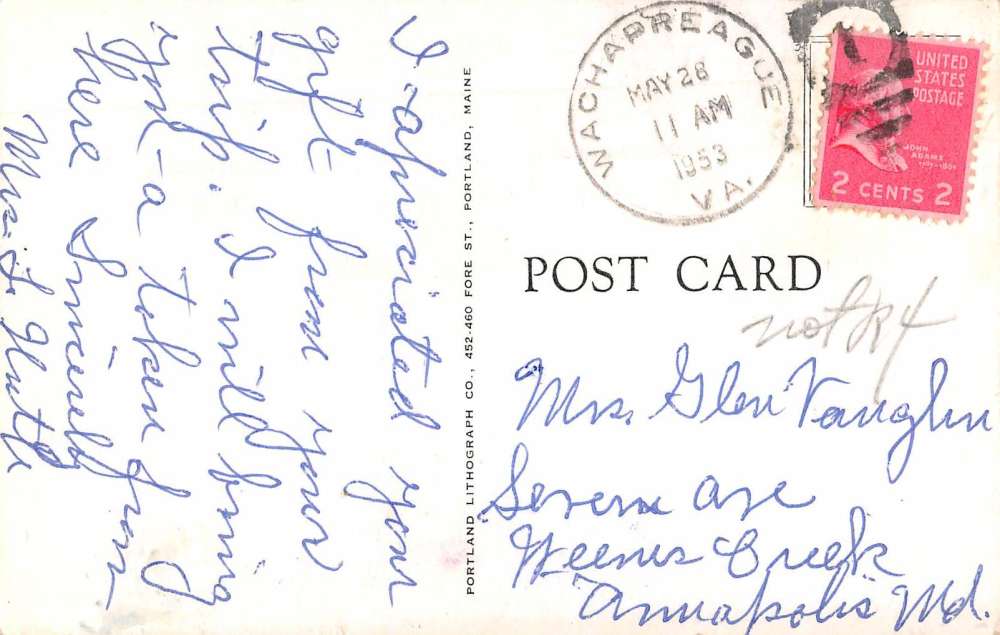 I apreciated your
gift from your
trip. I will bring
you a token from
here Sincerely
Mrs. L
PORTLAND LITHOGRAPH CO., 452-460 FORE ST., PORTLAND, MAINE
WACHAPREAGUE
MAY 28
11 AM
1953
VA.
UNITED
STATES
POSTAGE
JOHN
ADAMS
1797-1801
2 CENTS 2
POST CARD
not R 4
Mrs. Glen Vaughn
Severn Ave
Weems Creek
Annapolis Md.